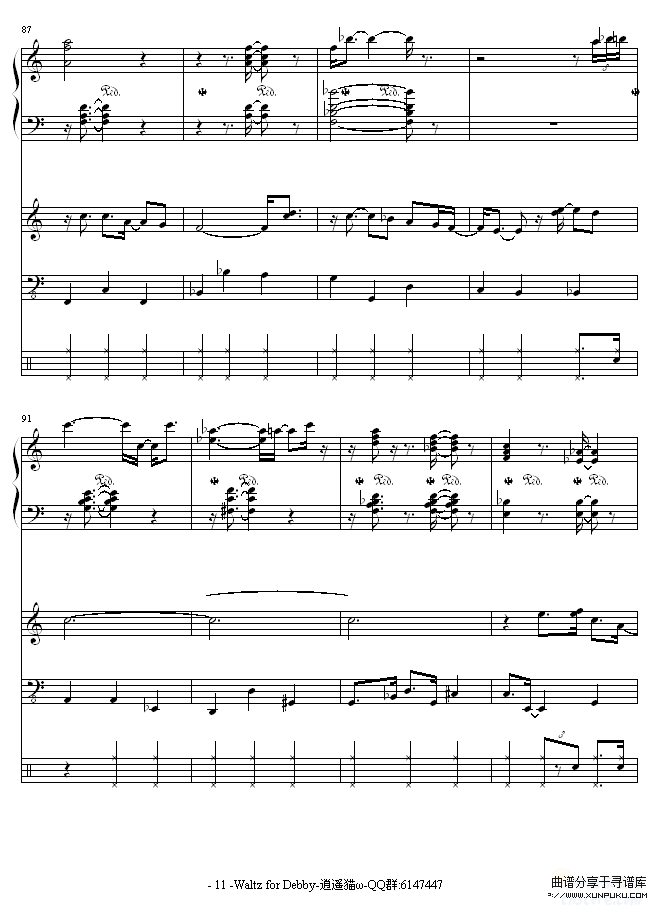 87
Ped.
Ped.
Ped.
Ped.
8
3
91
Ped.
Ped.
Ped.
Ped.
Ped.
8
3
- 11 -Waltz for Debby-逍遥猫ω-QQ群:6147447
曲谱分享于寻谱库
www.xunpuku.com